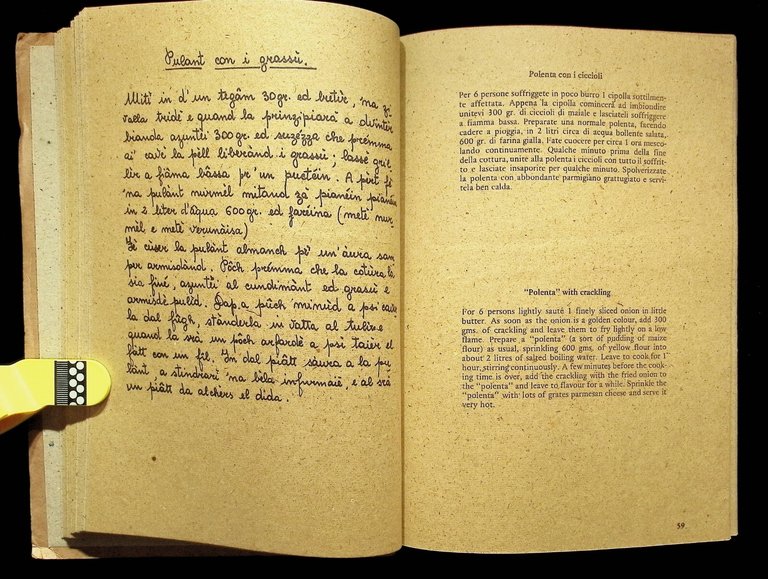 Pulànt con i grassù.
Mitì in d'un tegâm 30 gr. ed butér, 'na zi-
volla tridè e quand la prinzipiarà a dvinter
bianda azuntéi 300 gr. ed
ai' cavè la pèll liberand i grassù; lassè gril
lir a fiàma bàssa pr'un puctéin. A pèrt fè
'na pulànt nurmèl mitand zà pianéin pianéin
in 2 liter d'aqua 600 gr. ed faréina (metè nur-
mèl e metè verunàisa)
Fè cùser la pulànt almanch pr' un'àura sam
per armisdànd. Pôch prémma che la cotùra la
sia finé, azuntéi al cundimànt ed grassù e
armisdè pulìd. Dap.a pùch minùd a psì cavér
la dal fûgh, stànderla in vatta al tulîr e
quand la srà un pôch arfardè a psì taiér el
fàtt con un fil. In dal piàtt sàura a la pu
lànt, a stindrarì 'na bèla infurmaiè, e al srà
un piàtt da alchèrs el dida.
Polenta con i ciccioli
Per 6 persone soffriggete in poco burro 1 cipolla sottilmen-
te affettata. Appena la cipolla comincerà ad imbiondire
unitevi 300 gr. di ciccioli di maiale e lasciateli soffriggere
a fiamma bassa. Preparate una normale polenta, facendo
cadere a pioggia, in 2 litri circa di acqua bollente salata,
600 gr. di farina gialla. Fate cuocere per circa 1 ora mesco-
lando continuamente. Qualche minuto prima della fine
della cottura, unite alla polenta i ciccioli con tutto il soffrit-
to e lasciate insaporire per qualche minuto. Spolverizzate
la polenta con abbondante parmigiano grattugiato e servi-
tela ben calda.
"Polenta" with crackling
For 6 persons lightly sauté 1 finely sliced onion in little
butter. As soon as the onion is a golden colour, add 300
gms. of crackling and leave them to fry lightly on a low
flame. Prepare a "polenta" (a sort of pudding of maize
flour) as usual, sprinkling 600 gms. of yellow flour into
about 2 litres of salted boiling water. Leave to cook for 1
hour, stirring continuously. A few minutes before the cook-
ing time is over, add the crackling with the fried onion to
the "polenta" and leave to flavour for a while. Sprinkle the
"polenta" with lots of grates parmesan cheese and serve it
very hot.
59